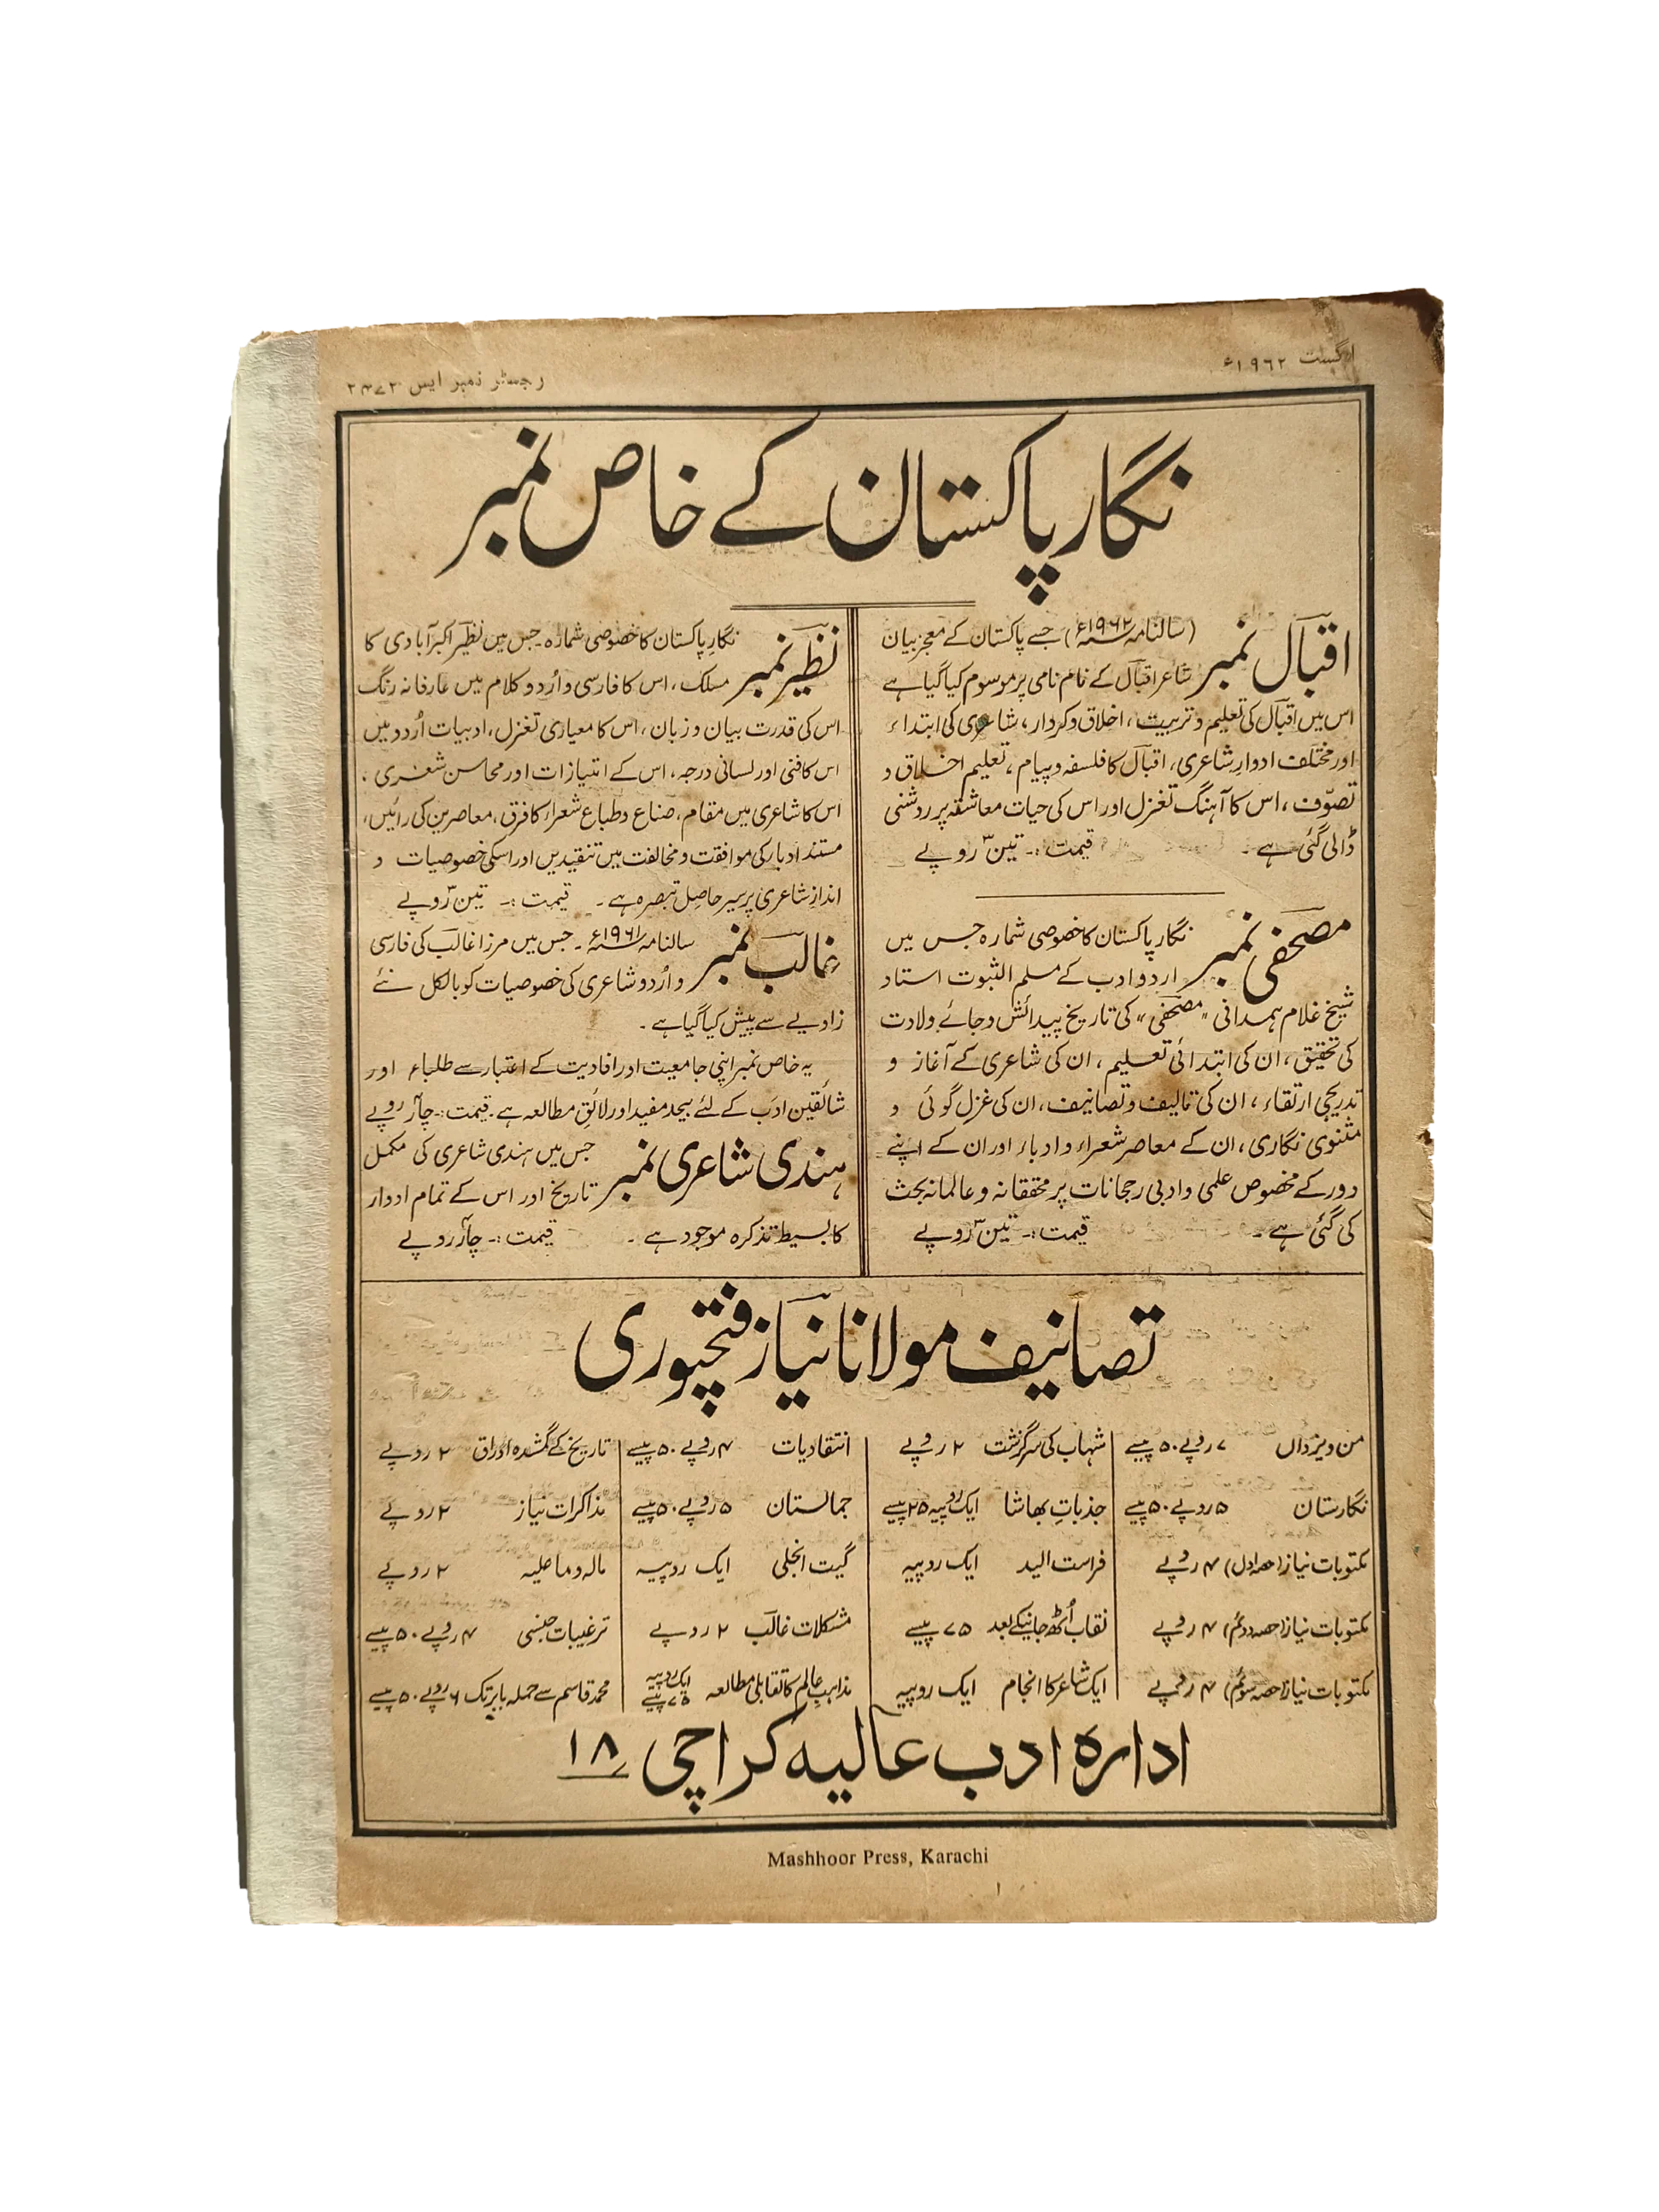 اگست ۱۹۶۲ء
رجسٹر نمبر ایس ۲۴۷۳
نگار پاکستان کے خاص نمبر
اقبال نمبر (سالنامہ ۱۹۶۲ء) جسے پاکستان کے معجز بیان
شاعر اقبال کے نام نامی پر موسوم کیا گیا ہے
اس میں اقبال کی تعلیم و تربیت، اخلاق و کردار، شاعری کی ابتداء
اور مختلف ادوارِ شاعری، اقبال کا فلسفہ و پیام، تعلیم اخلاق و
تصوّف، اس کا آہنگ تغزل اور اس کی حیات معاشقہ پر روشنی
ڈالی گئی ہے۔ قیمت:۔ تین ۳ روپے
مصحفی نمبر نگار پاکستان کا خصوصی شمارہ جس میں
اردو ادب کے مسلم الثبوت استاد
شیخ غلام ہمدانی "مصحفی" کی تاریخ پیدائش و جائے ولادت
کی تحقیق، ان کی ابتدائی تعلیم، ان کی شاعری کے آغاز و
تدریجی ارتقاء، ان کی تالیف و تصانیف، ان کی غزل گوئی و
مثنوی نگاری، ان کے معاصر شعراء و ادباء اور ان کے اپنے
دور کے مخصوص علمی و ادبی رجحانات پر محققانہ و عالمانہ بحث
کی گئی ہے۔ قیمت:۔ تین ۳ روپے
نظیر نمبر نگار پاکستان کا خصوصی شمارہ۔ جس میں نظیر اکبر آبادی کا
مسلک، اس کا فارسی و اُردو کلام میں عارفانہ رنگ
اس کی قدرت بیان و زبان، اس کا معیاری تغزل، ادبیات اُردو میں
اس کا فنی اور لسانی درجہ، اس کے امتیازات اور محاسن شعری،
اس کا شاعری میں مقام، صناع و طباع شعراء کا فرق، معاصرین کی رائیں،
مستند ادباء کی موافقت و مخالفت میں تنقیدیں اور اسکی خصوصیات و
انداز شاعری پر سیر حاصل تبصرہ ہے۔ قیمت:۔ تین ۳ روپے
غالب نمبر سالنامہ ۱۹۶۱ء۔ جس میں مرزا غالب کی فارسی
و اُردو شاعری کی خصوصیات کو بالکل نئے
زاویے سے پیش کیا گیا ہے۔
یہ خاص نمبر اپنی جامعیت اور افادیت کے اعتبار سے طلباء اور
شائقین ادب کے لئے بیحد مفید اور لائق مطالعہ ہے۔ قیمت:۔ چار روپے
ہندی شاعری نمبر جس میں ہندی شاعری کی مکمل
تاریخ اور اس کے تمام ادوار
کا بسیط تذکرہ موجود ہے۔ قیمت:۔ چار روپے
تصانیف مولانا نیاز فتحپوری
من و یزداں ۷ روپے ۵۰ پیسے
نگارستان ۵ روپے ۵۰ پیسے
مکتوبات نیاز (حصہ اول) ۴ روپے
مکتوبات نیاز (حصہ دوئم) ۴ روپے
مکتوبات نیاز (حصہ سوئم) ۴ روپے
شہاب کی سرگزشت ۲ روپے
جذبات بھاشا ایک روپیہ ۲۵ پیسے
فراست الید ایک روپیہ
نقاب اُٹھ جانیکے بعد ۷۵ پیسے
ایک شاعر کا انجام ایک روپیہ
انتقادیات ۴ روپے ۵۰ پیسے
جمالستان ۵ روپے ۵۰ پیسے
گیت انجلی ایک روپیہ
مشکلات غالب ۲ روپے
مذاہب عالم کا تقابلی مطالعہ ایک روپیہ ۷۵ پیسے
تاریخ کے گمشدہ اوراق ۲ روپے
مذاکرات نیاز ۲ روپے
مالہ و ماعلیہ ۲ روپے
ترغیبات جنسی ۴ روپے ۵۰ پیسے
محمد قاسم سے حملہ بابر تک ۶ روپے ۵۰ پیسے
ادارہ ادب عالیہ کراچی ۱۸
Mashhoor Press, Karachi